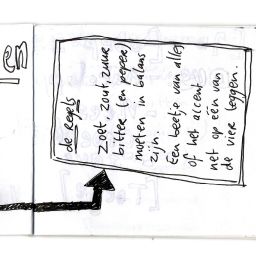 len
de Regels
zoet, zout, zuur
bitter (en peper)
moeten in balans
zijn.
Een beetje van alles
of het accent
net op één van
de vier leggen.